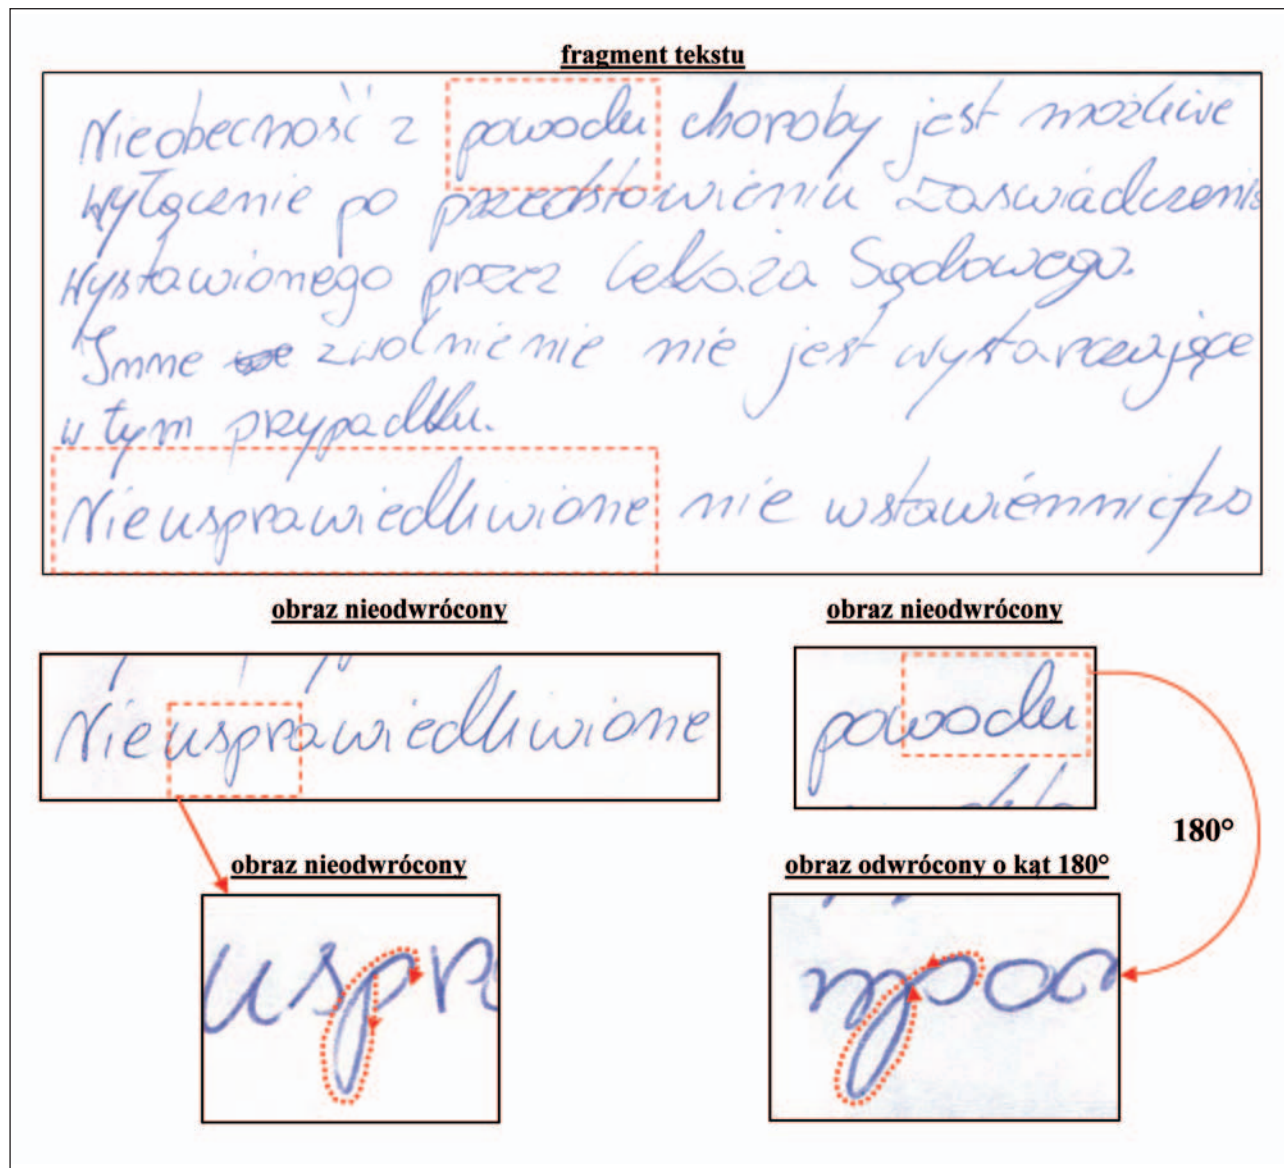 fragment tekstu
Nieobecność z powodu choroby jest możliwe
wyłącznie po przedstawieniu zaświadczenia
wystawionego przez lekaża Sądowego.
Inne zwolnienie nie jest wystarczające
w tym przypadku.
Nieusprawiedliwione nie wstawiennictwo
obraz nieodwrócony
obraz nieodwrócony
Nieusprawiedliwione
powodu
180°
obraz nieodwrócony
obraz odwrócony o kąt 180°
uspr